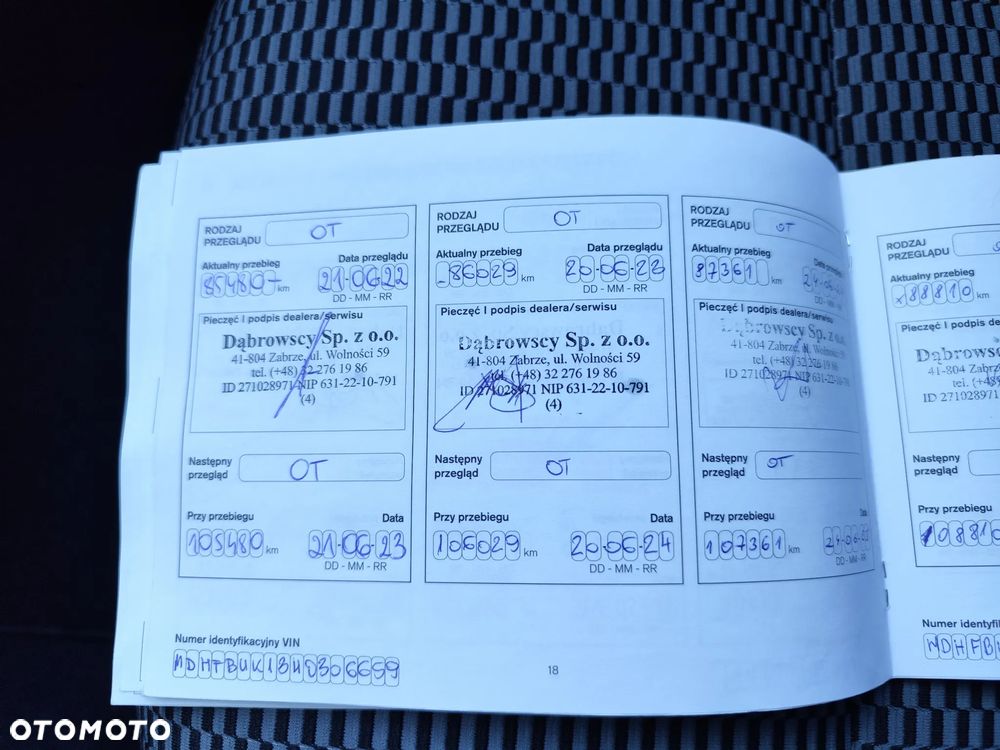 RODZAJ
PRZEGLĄDU
OT
Aktualny przebieg
Data przeglądu
85480- km
21-06-22
DD - MM - RR
Pieczęć I podpis dealera/serwisu
Dąbrowscy Sp. z o.o.
41-804 Zabrze, ul. Wolności 59
tel. (+48) 32 276 19 86
ID 271028971 NIP 631-22-10-791
(4)
Następny
przegląd
OT
Przy przebiegu
Data
105480 km
21-06-23
DD - MM - RR
RODZAJ
PRZEGLĄDU
OT
Aktualny przebieg
Data przeglądu
-86029 km
20-06-23
DD - MM - RR
Pieczęć I podpis dealera/serwisu
Dąbrowscy Sp. z o.o.
41-804 Zabrze, ul. Wolności 59
tel. (+48) 32 276 19 86
ID 271028971 NIP 631-22-10-791
(4)
Następny
przegląd
OT
Przy przebiegu
Data
106029 km
20-06-24
DD - MM - RR
RODZAJ
PRZEGLĄDU
OT
Aktualny przebieg
Data przeglądu
87361 km
DD - MM - RR
Pieczęć I podpis dealera/serwisu
Dąbrowscy Sp. z o.o.
41-804 Zabrze, ul. Wolności 59
tel. (+48) 32 276 19 86
ID 271028971 NIP 631-22-10-791
(4)
Następny
przegląd
OT
Przy przebiegu
Data
107361 km
DD - MM - RR
Numer identyfikacyjny VIN
18
RODZAJ
PRZEGLĄDU
Aktualny przebieg
x88810 km
Pieczęć I podpis
Dąbrowsc
41-804 Zabrz
tel. (+48)
ID 271028971
Następny
przegląd
Przy przebiegu
10881
Numer identyfi
OTOMOTO